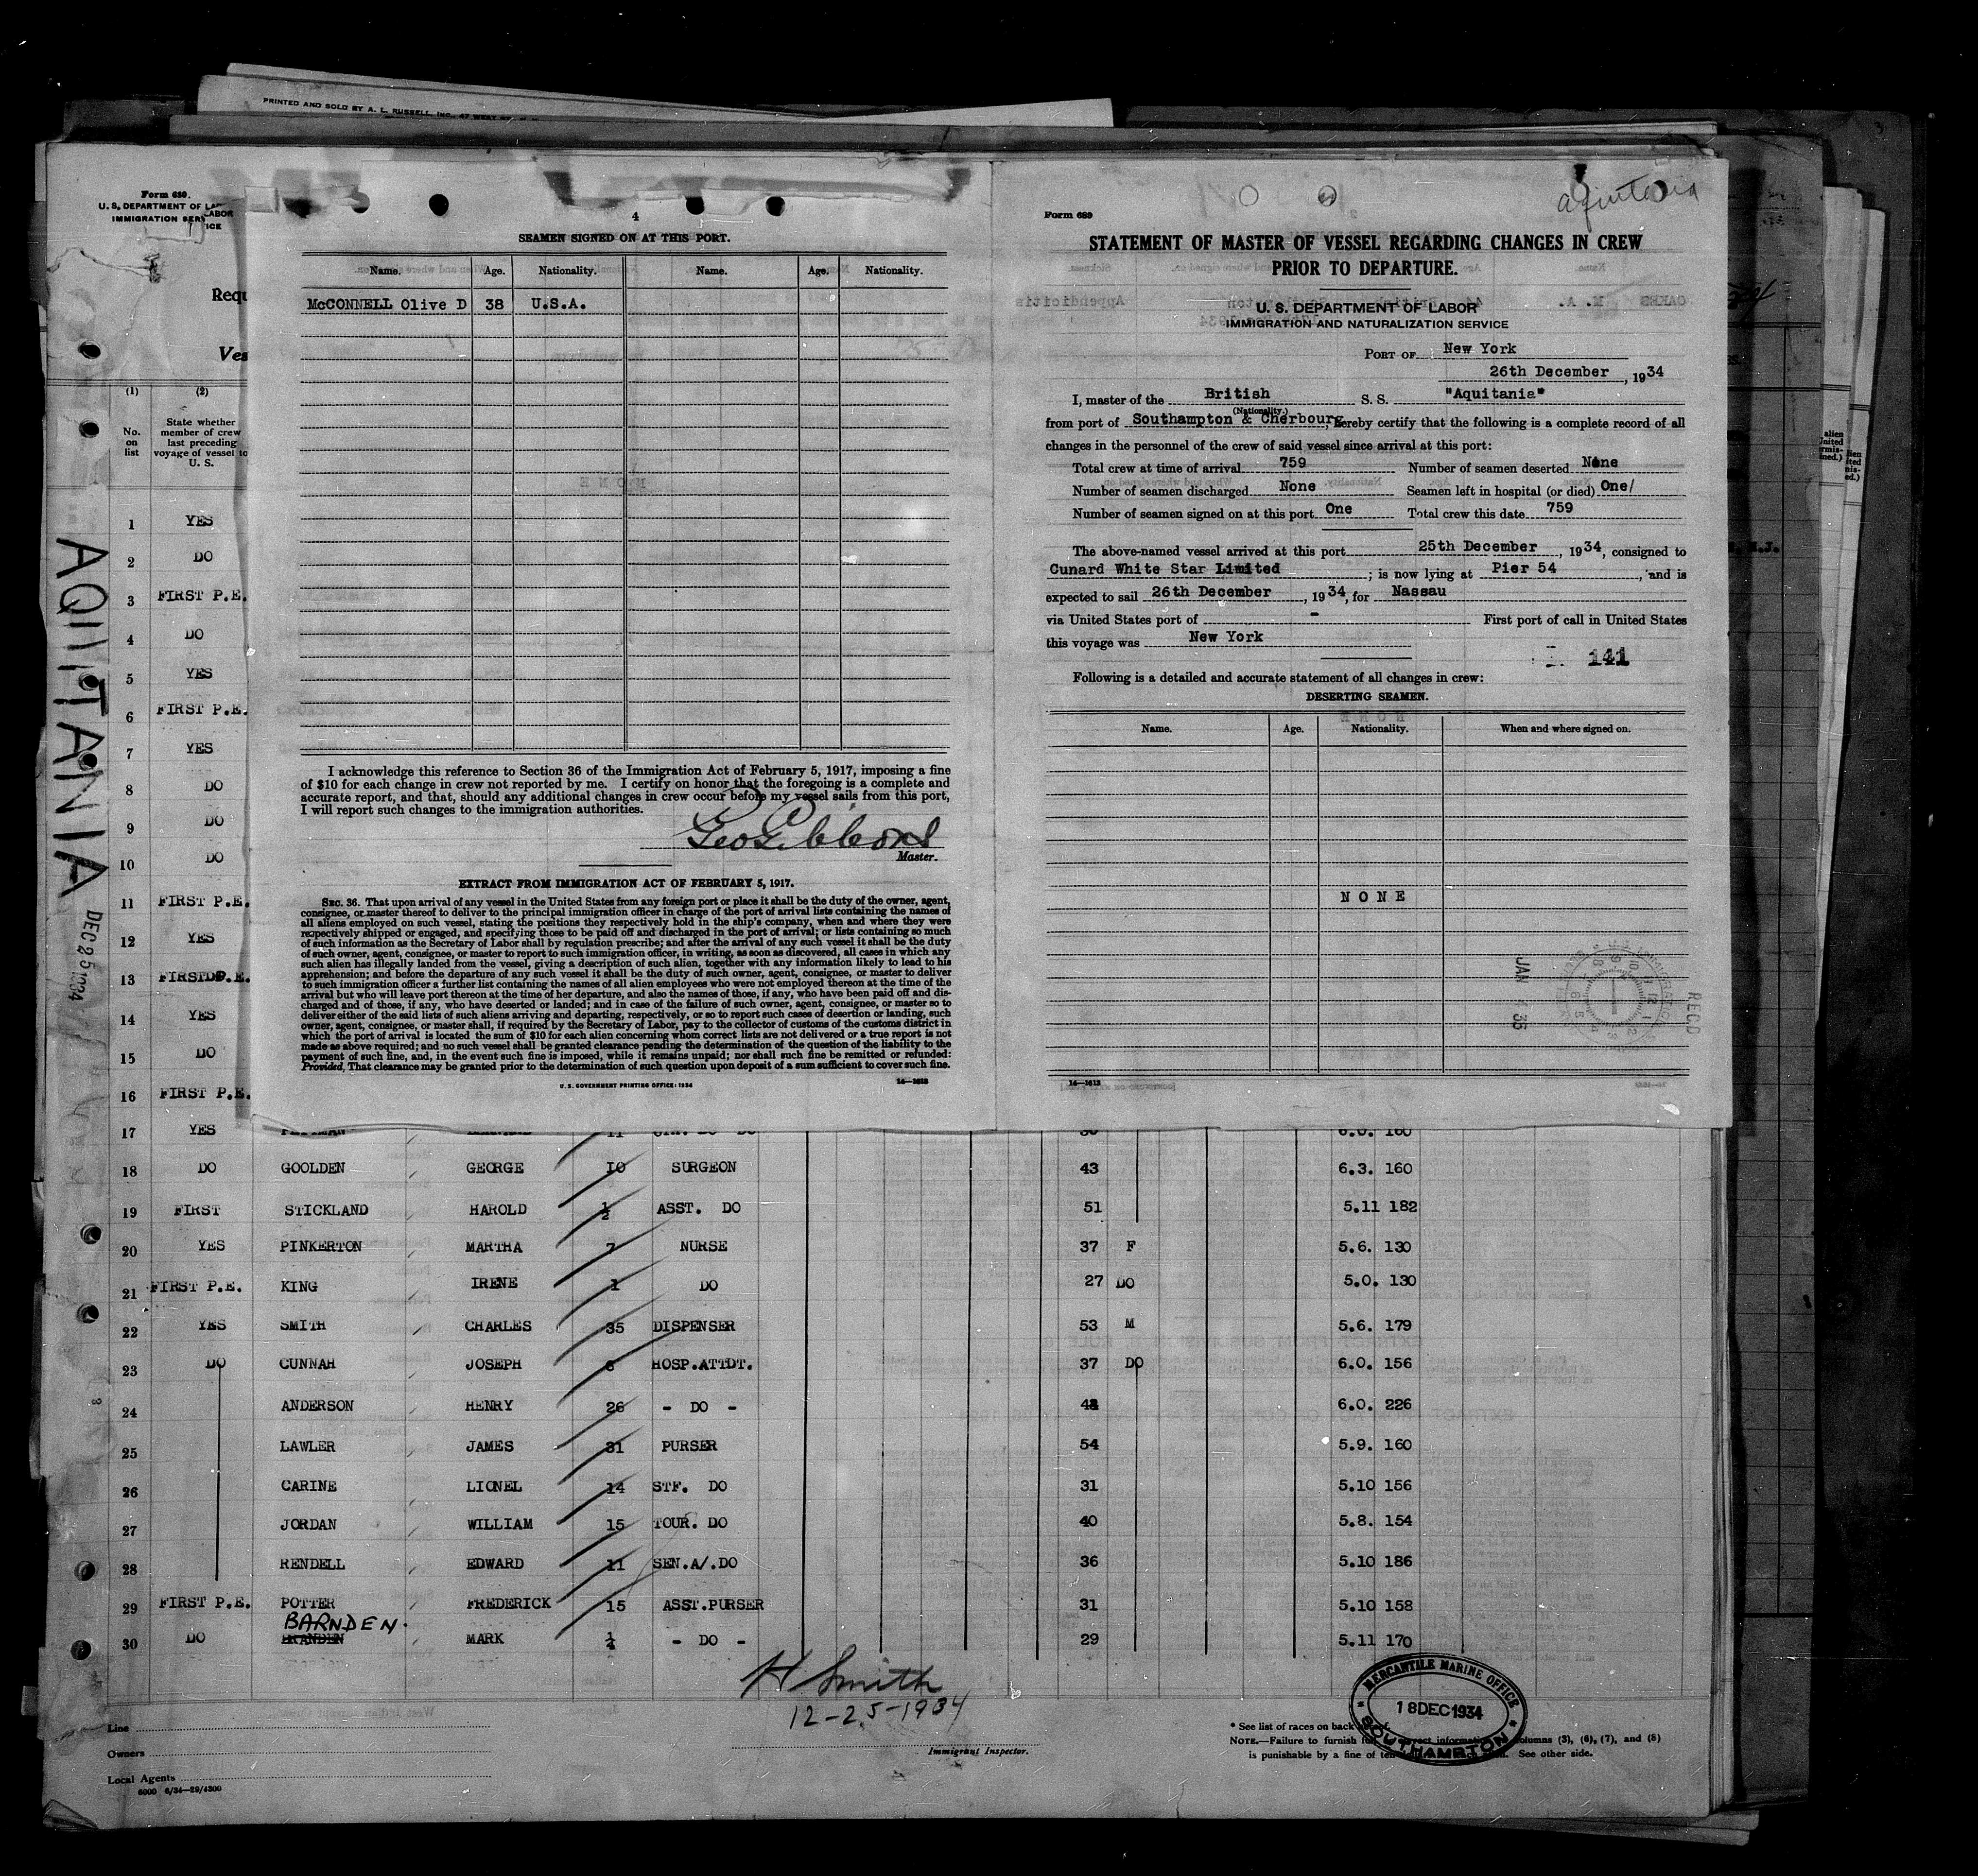 PRINTED AND SOLD BY A. L. RUSSELL, INC., 47 WEST
Form 689.
U. S. DEPARTMENT OF
IMMIGRATION
LABOR
ICE
(1)
(2)
No.
on
list
State whether
member of crew
last preceding
voyage of vessel to
U. S.
AQUITANIA
DEC 25 1934
1 YES
2 DO
3 FIRST P.E.
4 DO
5 YES
6 FIRST P.E.
7 YES
8 DO
9 DO
10 DO
11 FIRST P.E.
12 YES
13 FIRST P.E.
14 YES
15 DO
16 FIRST P.E.
4
SEAMEN SIGNED ON AT THIS PORT.
Name. Age. Nationality. Name. Age. Nationality.
McCONNELL Olive D 38 U.S.A.
I acknowledge this reference to Section 36 of the Immigration Act of February 5, 1917, imposing a fine
of $10 for each change in crew not reported by me. I certify on honor that the foregoing is a complete and
accurate report, and that, should any additional changes in crew occur before my vessel sails from this port,
I will report such changes to the immigration authorities.
Geo Gibbons
Master.
EXTRACT FROM IMMIGRATION ACT OF FEBRUARY 5, 1917.
SEC. 36. That upon arrival of any vessel in the United States from any foreign port or place it shall be the duty of the owner, agent,
consignee, or master thereof to deliver to the principal immigration officer in charge of the port of arrival lists containing the names of
all aliens employed on such vessel, stating the positions they respectively hold in the ship's company, when and where they were
respectively shipped or engaged, and specifying those to be paid off and discharged in the port of arrival; or lists containing so much
of such information as the Secretary of Labor shall by regulation prescribe; and after the arrival of any such vessel it shall be the duty
of such owner, agent, consignee, or master to report to such immigration officer, in writing, as soon as discovered, all cases in which any
such alien has illegally landed from the vessel, giving a description of such alien, together with any information likely to lead to his
apprehension; and before the departure of any such vessel it shall be the duty of such owner, agent, consignee, or master to deliver
to such immigration officer a further list containing the names of all alien employees who were not employed thereon at the time of the
arrival but who will leave port thereon at the time of her departure, and also the names of those, if any, who have been paid off and dis-
charged and of those, if any, who have deserted or landed; and in case of the failure of such owner, agent, consignee, or master so to
deliver either of the said lists of such aliens arriving and departing, respectively, or so to report such cases of desertion or landing, such
owner, agent, consignee, or master shall, if required by the Secretary of Labor, pay to the collector of customs of the customs district in
which the port of arrival is located the sum of $10 for each alien concerning whom correct lists are not delivered or a true report is not
made as above required; and no such vessel shall be granted clearance pending the determination of the question of the liability to the
payment of such fine, and, in the event such fine is imposed, while it remains unpaid; nor shall such fine be remitted or refunded:
Provided, That clearance may be granted prior to the determination of such question upon deposit of a sum sufficient to cover such fine.
U. S. GOVERNMENT PRINTING OFFICE: 1934 14—1613
Aquitania
Form 689
STATEMENT OF MASTER OF VESSEL REGARDING CHANGES IN CREW
PRIOR TO DEPARTURE.
U. S. DEPARTMENT OF LABOR
IMMIGRATION AND NATURALIZATION SERVICE
PORT OF New York
26th December, 1934
I, master of the British S. S. "Aquitania"
(Nationality.)
from port of Southampton & Cherbourg, hereby certify that the following is a complete record of all
changes in the personnel of the crew of said vessel since arrival at this port:
Total crew at time of arrival 759 Number of seamen deserted None
Number of seamen discharged None Seamen left in hospital (or died) One/
Number of seamen signed on at this port One Total crew this date 759
The above-named vessel arrived at this port 25th December, 1934, consigned to
Cunard White Star Limited; is now lying at Pier 54, and is
expected to sail 26th December, 1934, for Nassau
via United States port of - First port of call in United States
this voyage was New York
141
Following is a detailed and accurate statement of all changes in crew:
DESERTING SEAMEN.
Name. Age. Nationality. When and where signed on.
NONE
JAN 35
REC'D
14—1613
17 YES
18 DO GOOLDEN GEORGE 10 SURGEON 43 6.3. 160
19 FIRST STICKLAND HAROLD 1/2 ASST. DO 51 5.11 182
20 YES PINKERTON MARTHA 7 NURSE 37 F 5.6. 130
21 FIRST P.E. KING IRENE 1 DO 27 DO 5.0. 130
22 YES SMITH CHARLES 35 DISPENSER 53 M 5.6. 179
23 DO CUNNAH JOSEPH 6 HOSP.ATTDT. 37 DO 6.0. 156
24 ANDERSON HENRY 26 - DO - 6.0. 226
25 LAWLER JAMES 31 PURSER 54 5.9. 160
26 CARINE LIONEL 14 STF. DO 31 5.10 156
27 JORDAN WILLIAM 15 TOUR. DO 40 5.8. 154
28 RENDELL EDWARD 11 SEN.A/.DO 36 5.10 186
29 FIRST P.E. POTTER FREDERICK 15 ASST.PURSER 31 5.10 158
BARNDEN.
30 DO BRANDEN MARK - DO - 29 5.11 170
H Smith
12-25-1934
Immigrant Inspector.
Line
Owners
Local Agents
6000 6/34—29/4300
MERCANTILE MARINE OFFICE
18DEC1934
SOUTHAMPTON
* See list of races on back
NOTE.—Failure to furnish columns (3), (6), (7), and (8)
is punishable by a fine of See other side.